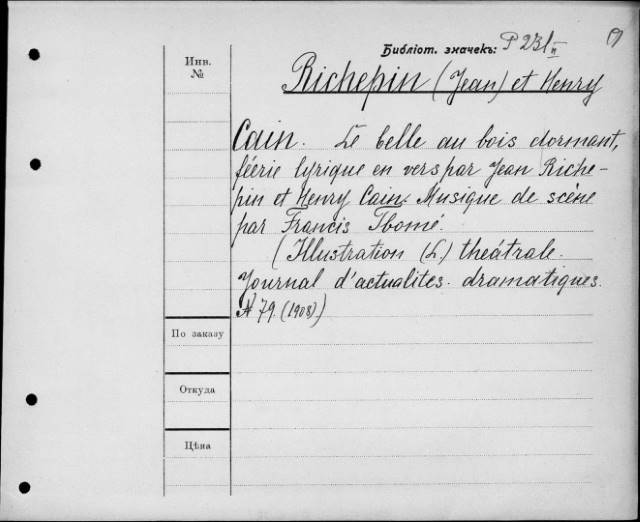 Библіот. значекъ: P 231 II
Инв.
№
Richepin (Jean) et Henry
Cain. Le belle au bois dormant,
féerie lyrique en vers par Jean Riche-
pin et Henry Cain. Musique de scène
par Francis Thomé.
(Illustration (L) theátrale.
Journal d'actualites dramatiques.
№ 79. (1908).)
По заказу
Откуда
Цѣна